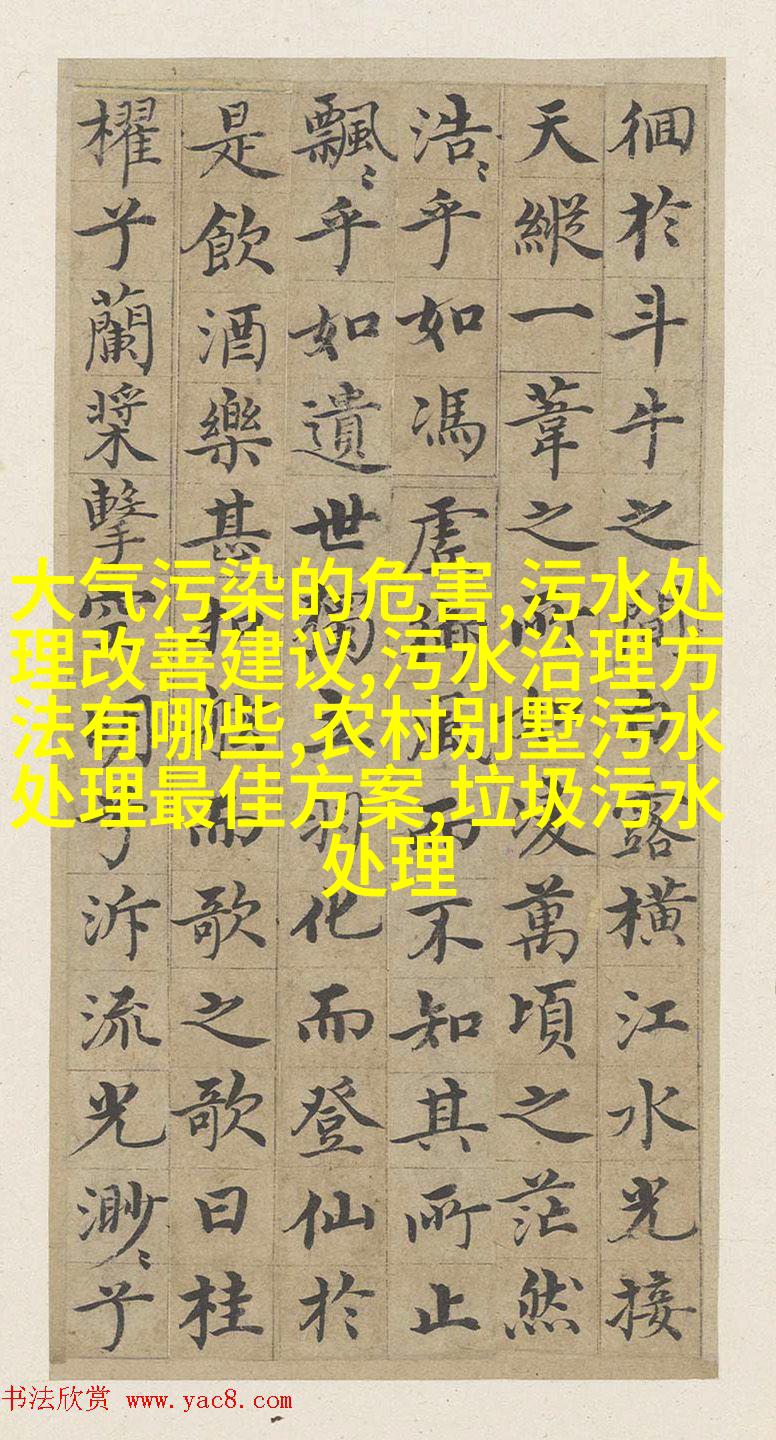 徊於斗牛之間白露橫江水光接
天縱一葦之所如凌萬頃之茫然
浩〻乎如馮虛御風而不知其所止
飄〻乎如遺世獨立羽化而登仙於
是飲酒樂甚扣舷而歌之歌曰桂
櫂兮蘭槳擊空明兮泝流光渺〻兮
大气污染的危害,污水处
理改善建议,污水治理方
法有哪些,农村别墅污水
处理最佳方案,垃圾污水
处理
书法欣赏 www.yac8.com